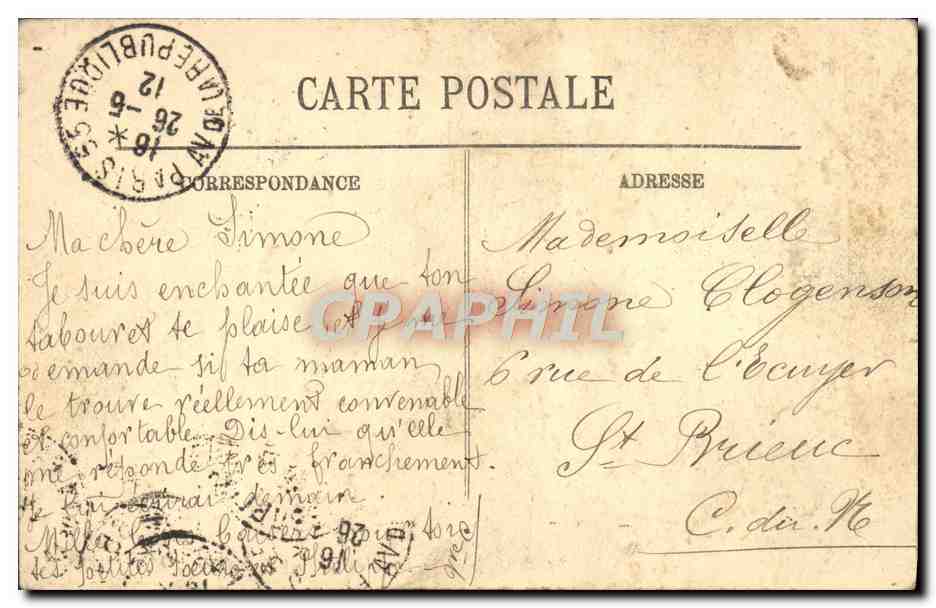 CARTE POSTALE
PARIS 55 AV DE LA REPUBLIQUE
18 *
26 -6
12
CORRESPONDANCE
Ma chère Simone
Je suis enchantée que ton
tabouret te plaise, et
demande si ta maman
le trouve réellement convenable
et confortable. Dis-lui qu'elle
me réponde très franchement.
Je lui écrirai demain.
Mille baisers pour toi
tes petites
ADRESSE
Mademoiselle
Simone Clogenson
6 rue de l'Ecuyer
St Brieuc
C. du N
16
26
CPAPHIL